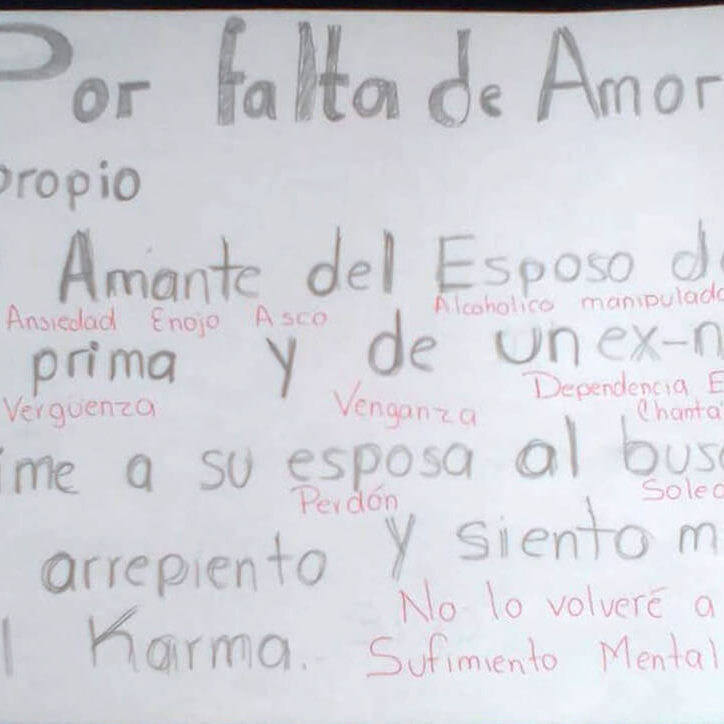 Por falta de Amor
propio
Amante del Esposo
Ansiedad Enojo Asco Alcoholico manipulado
prima y de un ex-n
Verguenza Venganza Dependencia E
Chanta
ime a su esposa al bus
Perdón Soled
arrepiento y siento m
No lo volveré a
l Karma.
Sufimiento Mental